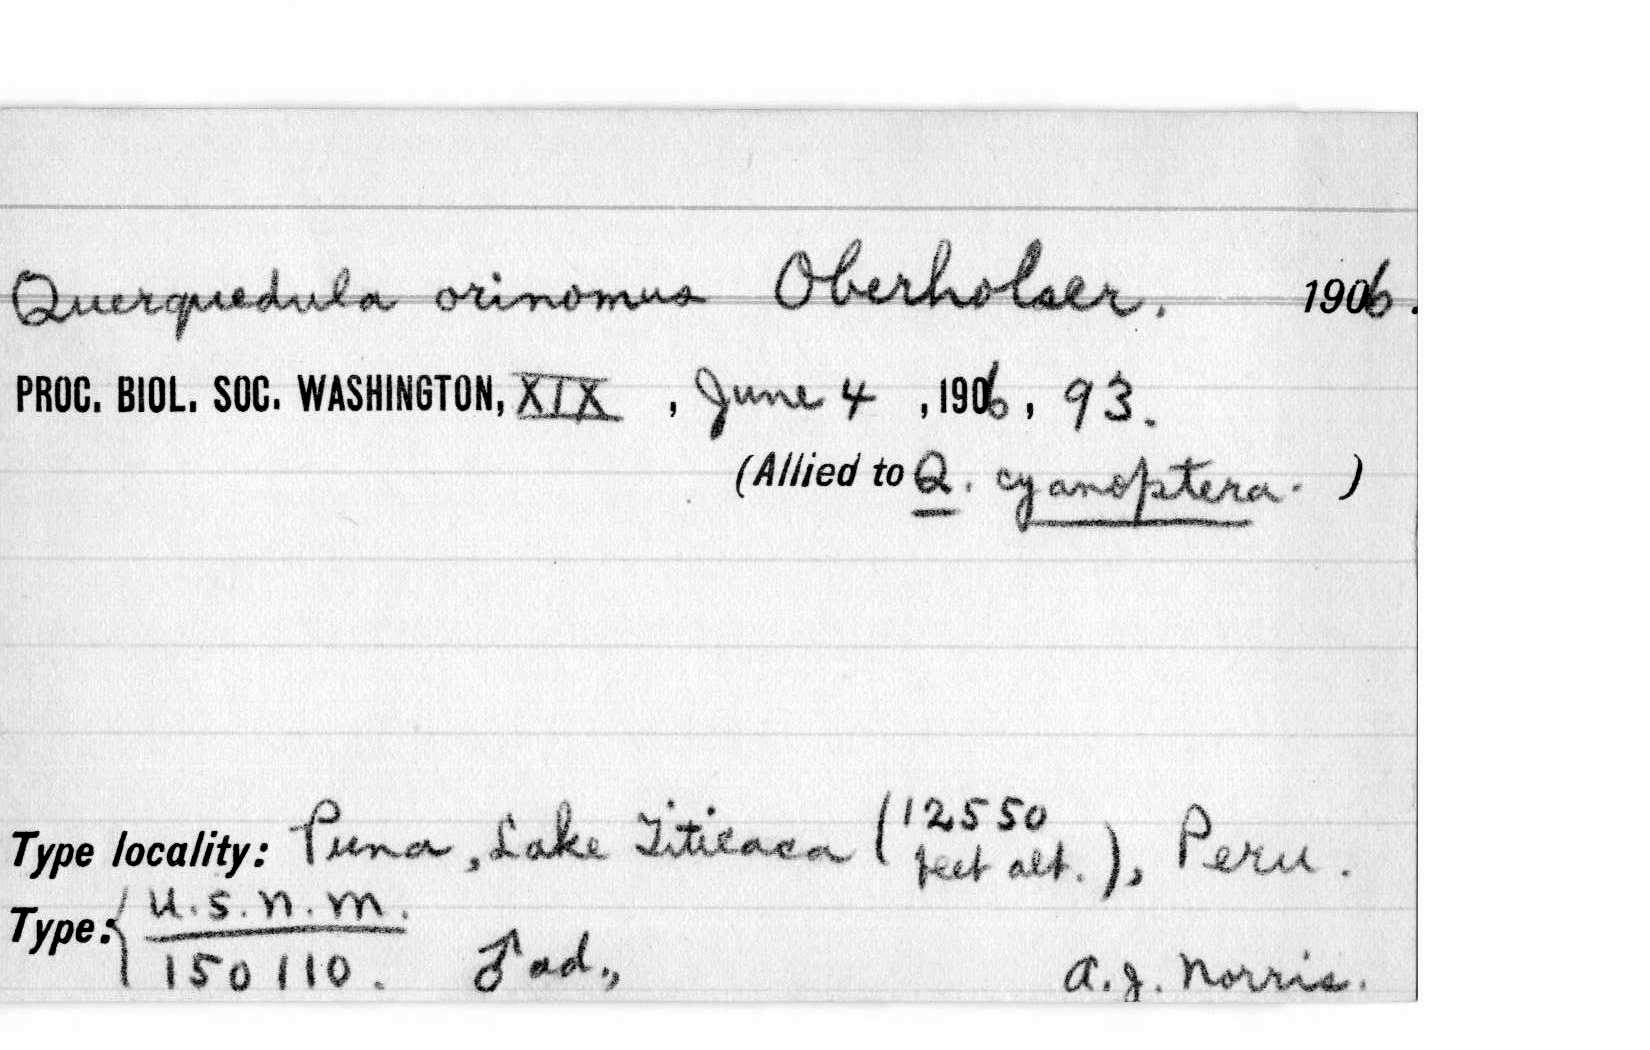 Querquedula orinomus Oberholser. 1906.
PROC. BIOL. SOC. WASHINGTON, XIX, June 4, 1906, 93.
(Allied to Q. cyanoptera.)
Type locality: Puna, Lake Titicaca (12550 feet alt.), Peru.
Type: { U.S.N.M.
150110. ♂ ad., A.J. Norris.